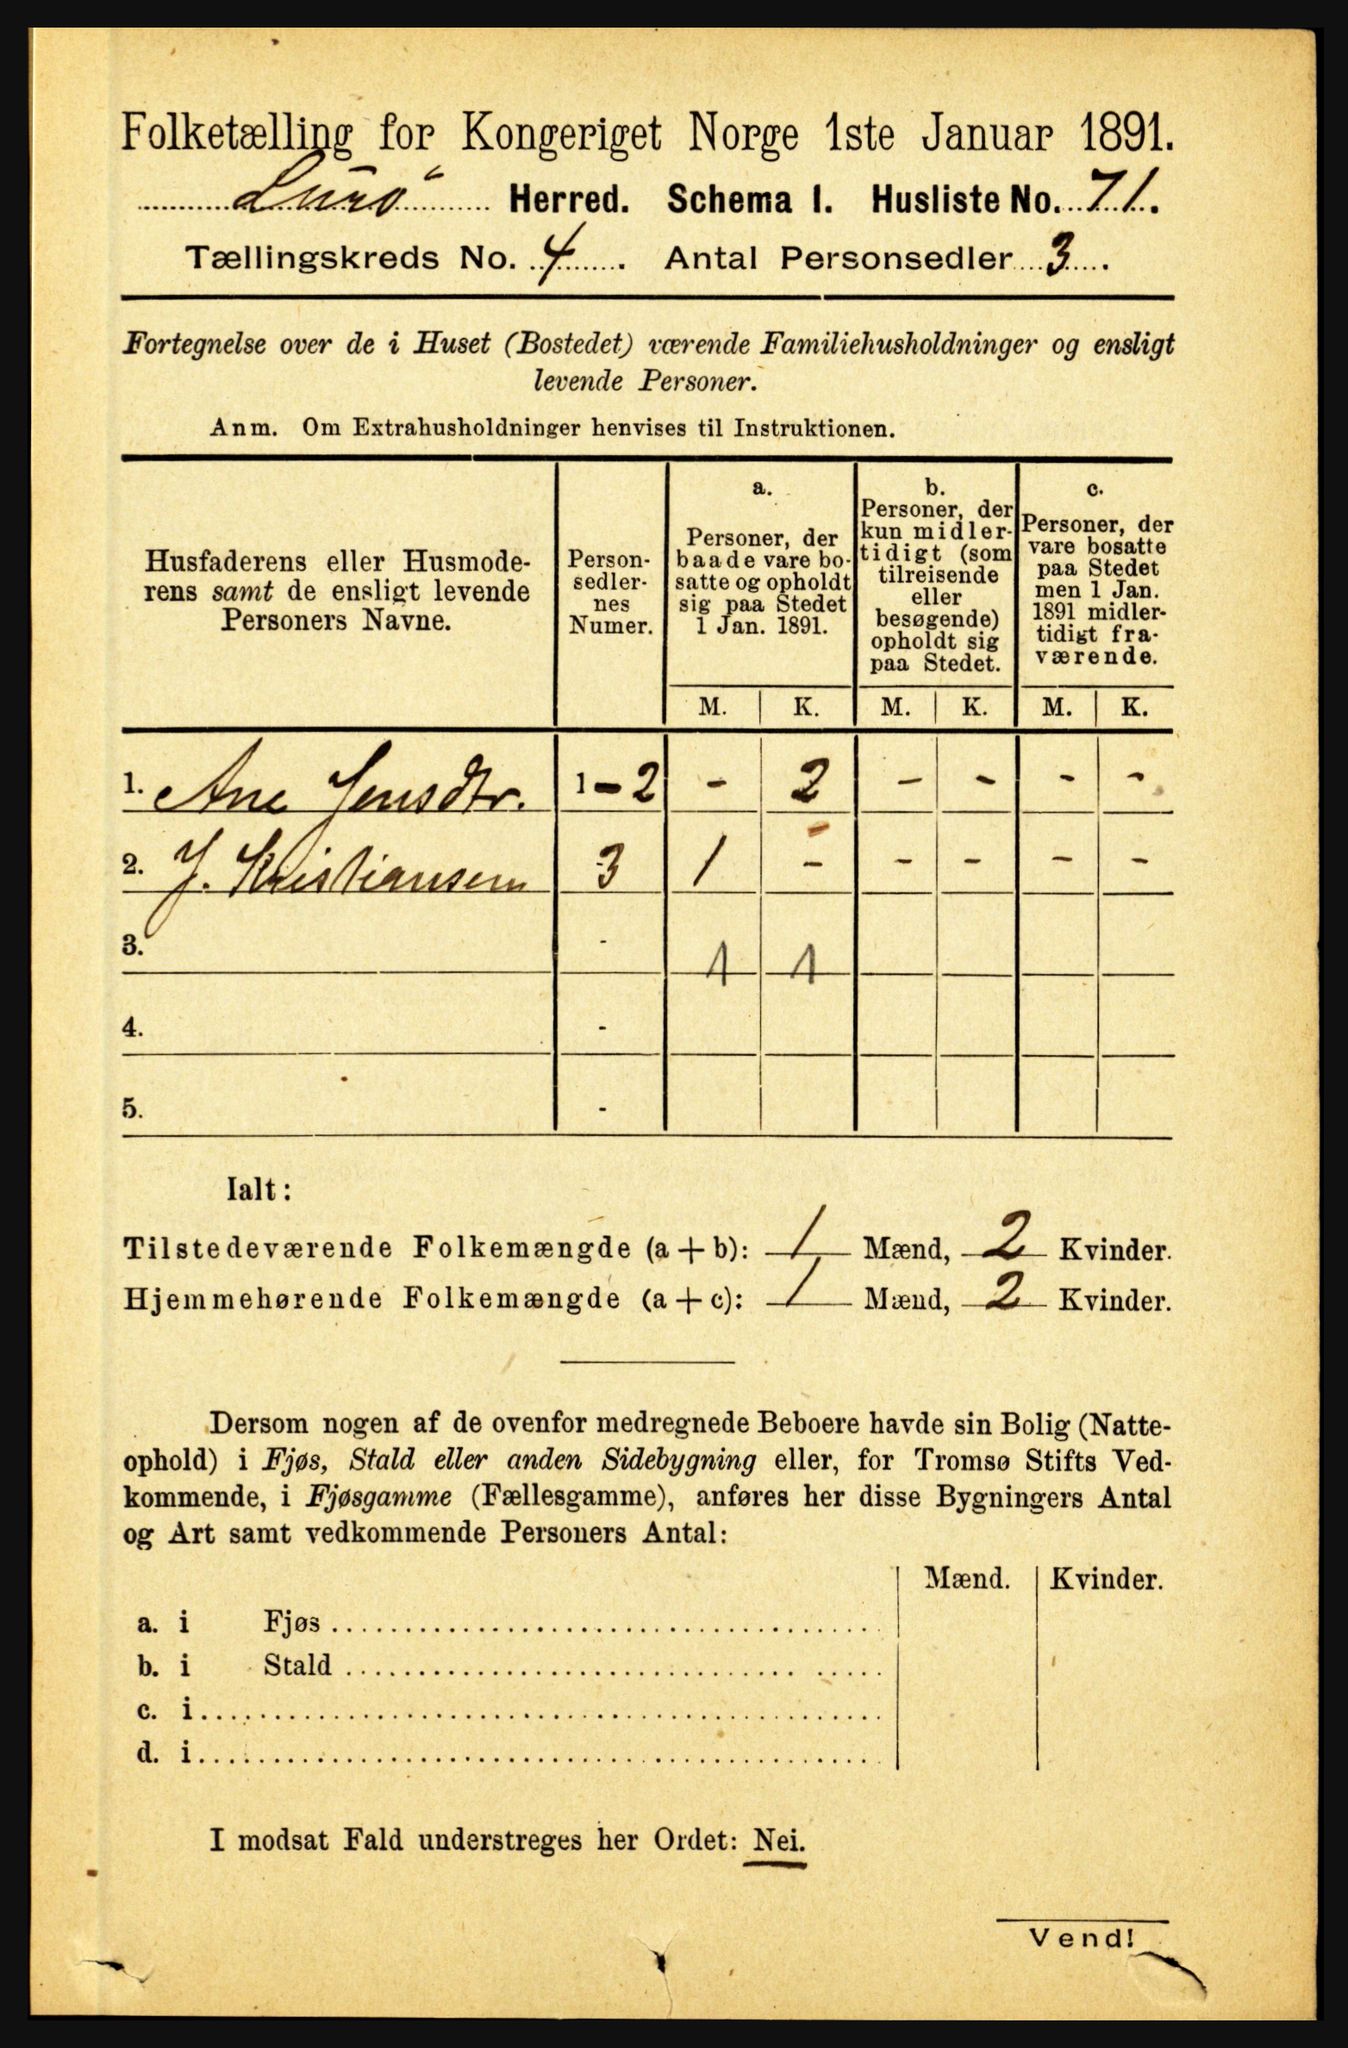 Folketælling for Kongeriget Norge 1ste Januar 1891.
Lurø Herred. Schema I. Husliste No. 71.
Tællingskreds No. 4. Antal Personsedler 3.
Fortegnelse over de i Huset (Bostedet) værende Familiehusholdninger og ensligt
levende Personer.
Anm. Om Extrahusholdninger henvises til Instruktionen.
Husfaderens eller Husmode-
rens samt de ensligt levende
Personers Navne.
Person-
sedler-
nes
Numer.
a.
Personer, der
baade vare bo-
satte og opholdt
sig paa Stedet
1 Jan. 1891.
b.
Personer, der
kun midler-
tidigt (som
tilreisende
eller
besøgende)
opholdt sig
paa Stedet.
c.
Personer, der
vare bosatte
paa Stedet
men 1 Jan.
1891 midler-
tidigt fra-
værende.
M. K. M. K. M. K.
1. Ane Jensdtr. 1 - 2 - 2 - - - -
2. J. Kristiansen 3 1 - - - - -
3. - 1 1
4. -
5. -
Ialt:
Tilstedeværende Folkemængde (a + b): 1 Mænd, 2 Kvinder.
Hjemmehørende Folkemængde (a + c): 1 Mænd, 2 Kvinder.
Dersom nogen af de ovenfor medregnede Beboere havde sin Bolig (Natte-
ophold) i Fjøs, Stald eller anden Sidebygning eller, for Tromsø Stifts Ved-
kommende, i Fjøsgamme (Fællesgamme), anføres her disse Bygningers Antal
og Art samt vedkommende Personers Antal:
Mænd. Kvinder.
a. i Fjøs
b. i Stald
c. i
d. i
I modsat Fald understreges her Ordet: Nei.
Vend!